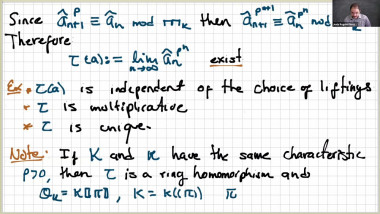 Since â_{n+1}^p ≡ â_n mod m_K then â_{n+1}^{p^{n+1}} ≡ â_n^{p^n} mod
Therefore
τ(a) := lim_{n→∞} â_n^{p^n} exist
Ex. * τ(a) is independent of the choice of liftings
* τ is multiplicative
* τ is unique.
Note: If K and κ have the same characteristic
p>0, then τ is a ring homomorphism and
O_K = κ[[π]], K = κ((π)) π